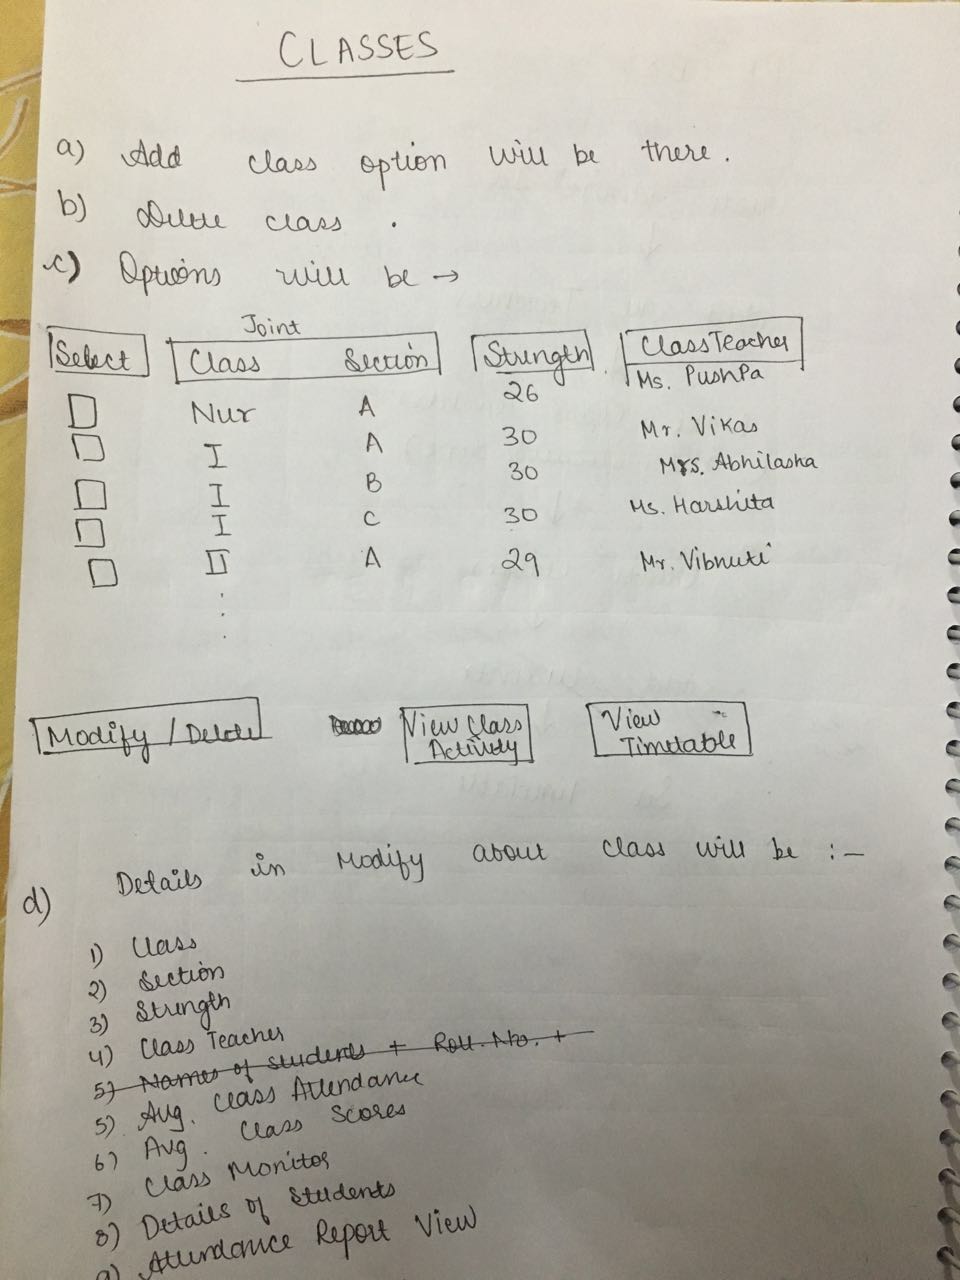 CLASSES
a) Add class option will be there.
b) Delete class .
c) Options will be →
Joint
Select Class Section Strength Class Teacher
Nur A 26 Ms. PushPa
I A 30 Mr. Vikas
I B 30 Mrs. Abhilasha
I C 30 Ms. Harshita
II A 29 Mr. Vibhuti
.
.
.
Modify / Delete View Class Activity View Timetable
d) Details in Modify about class will be :-
1) Class
2) Section
3) Strength
4) Class Teacher
5) Names of students + Roll. No. +
5) Avg. Class Attendance
6) Avg. Class Scores
7) Class Monitor
8) Details of Students
9) Attendance Report View